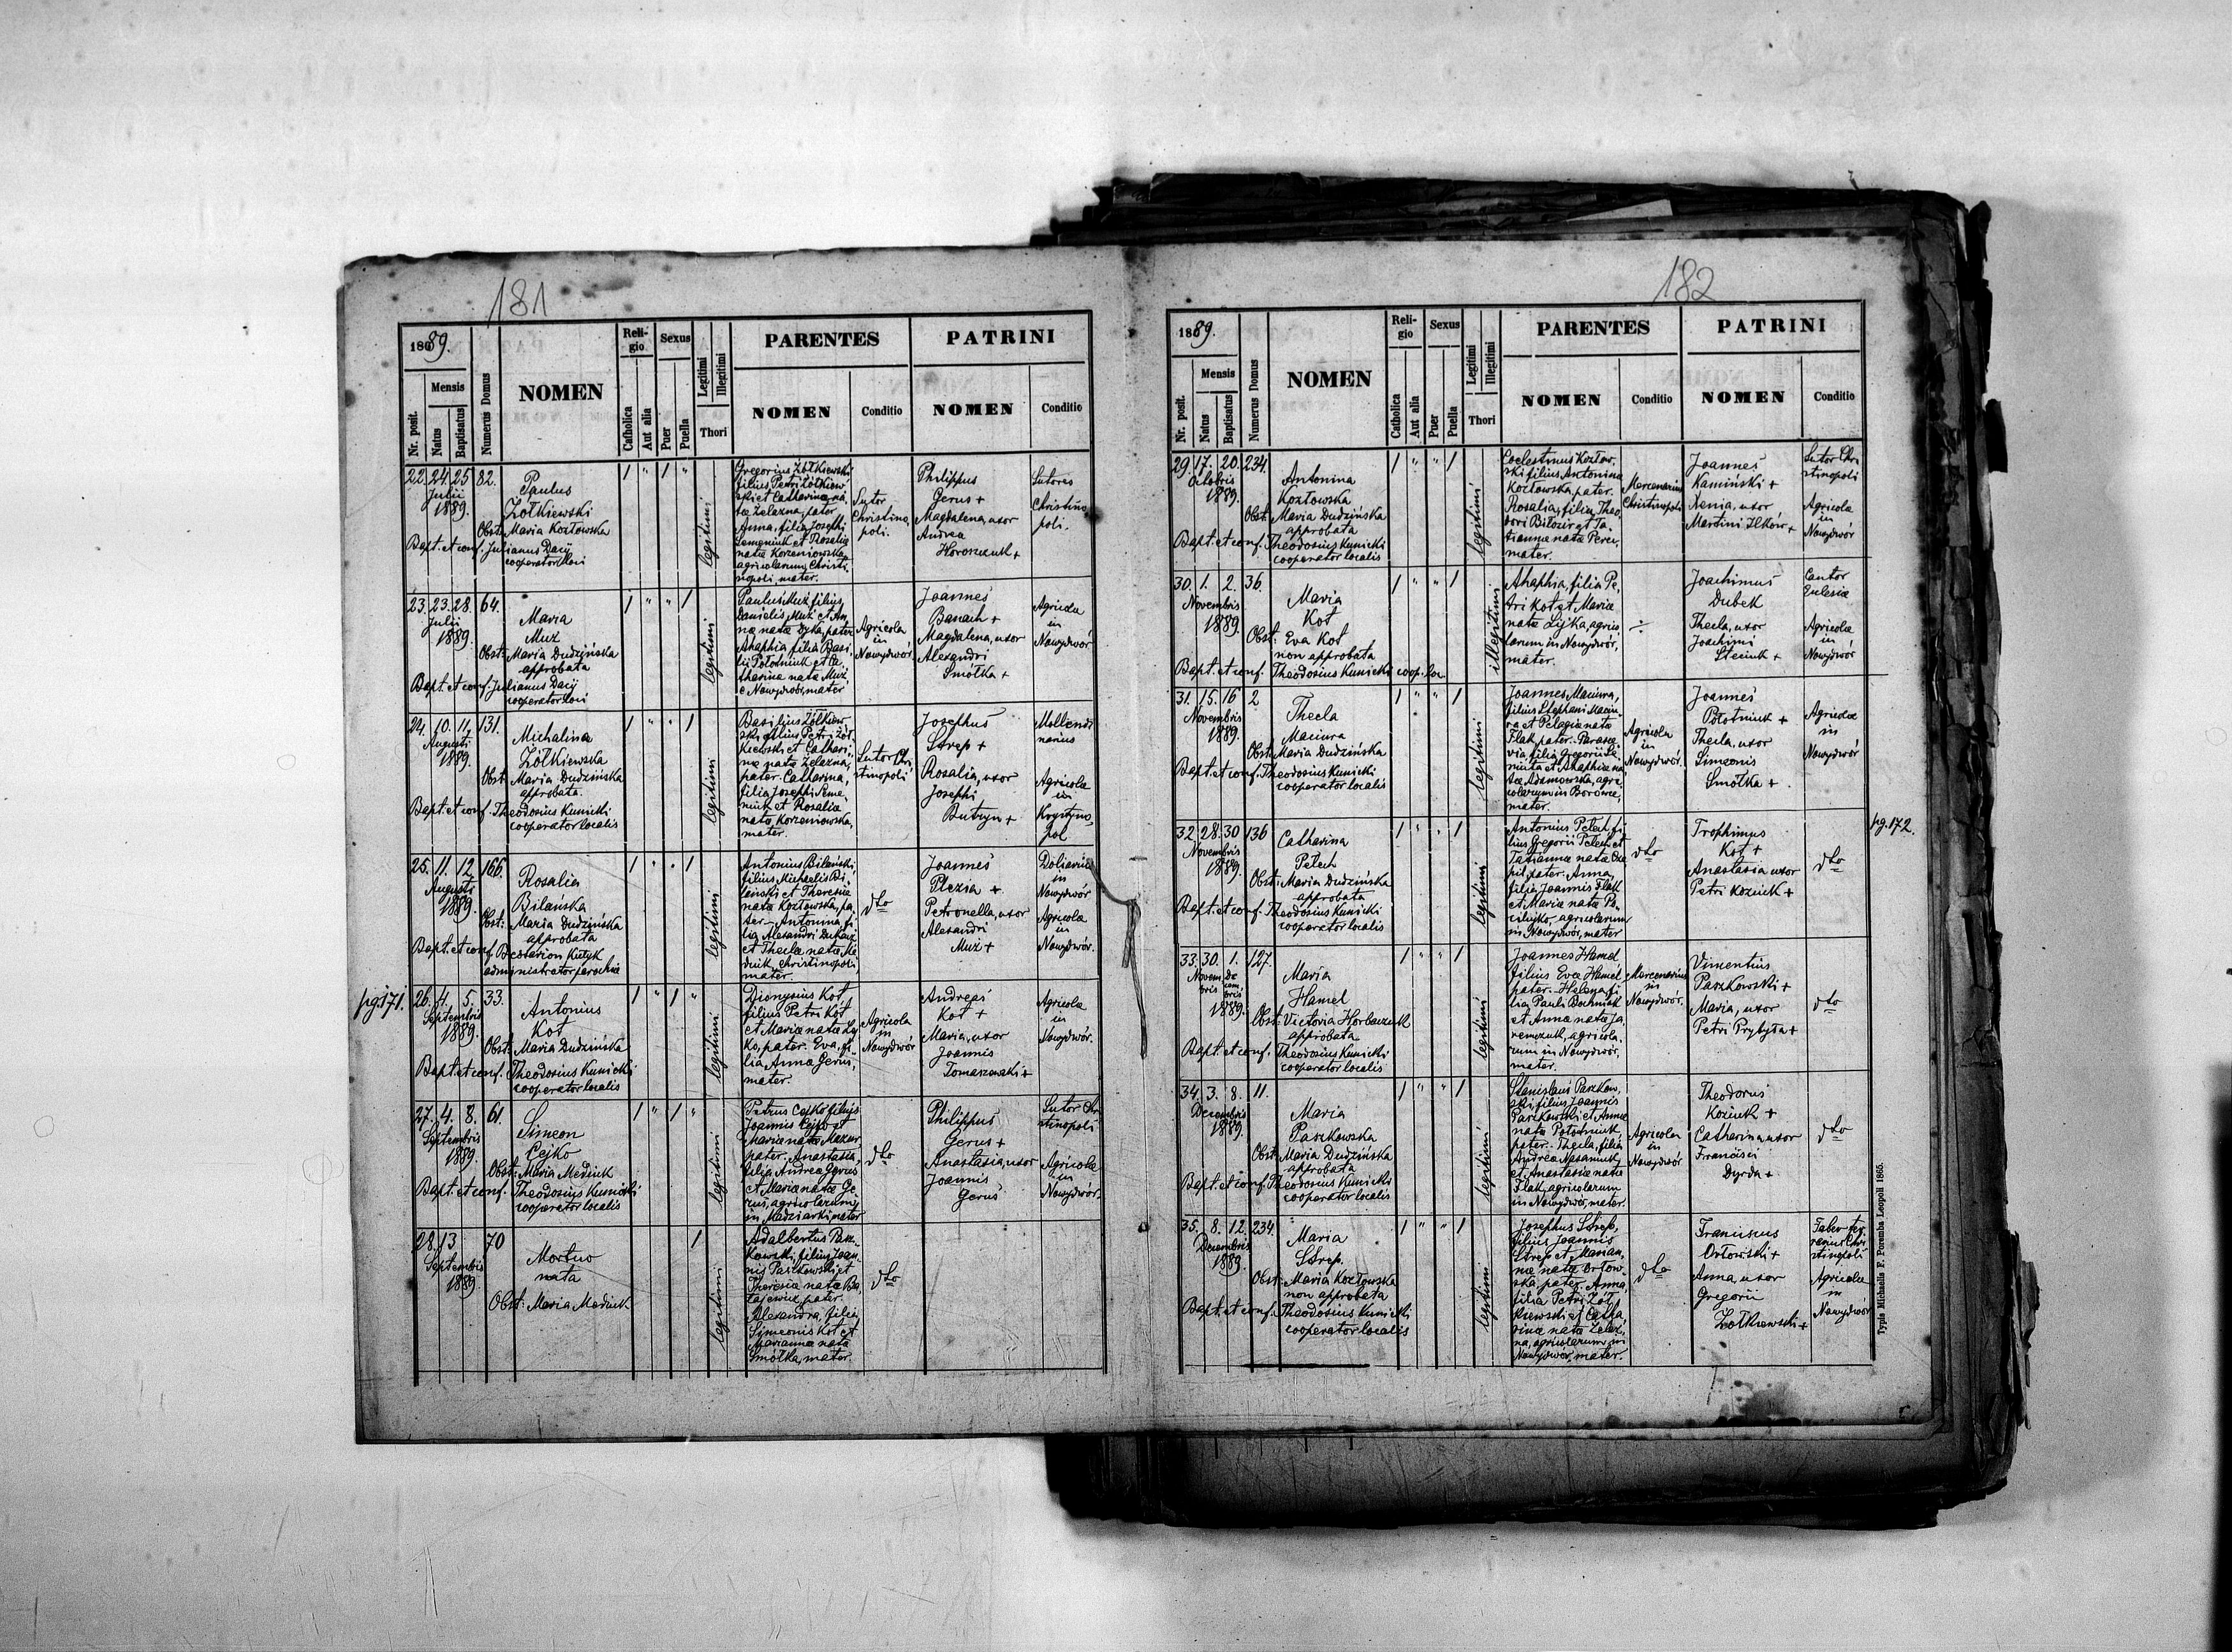 181
1889.
Nr. posit.
Mensis
Natus
Baptisatus
Numerus Domus
NOMEN
Religio
Catholica
Aut alia
Sexus
Puer
Puella
Legitimi
Illegitimi
Thori
PARENTES
NOMEN
Conditio
PATRINI
NOMEN
Conditio
22. 24. 25 82.
Julii
1889.
Paulus
Żółkiewski
Obst: Maria Kozłowska
Bapt. et conf. Julianus Dacij
cooperator loci
legitimi
Gregorius Żółkiewski
filius Petri Żółkiew-
ski et Catharinæ na-
tæ Żelazna, pater
Anna, filia Josephi
Semeniuk et Rosaliæ
natæ Korzeniowska,
agricolarum Christi-
nopoli mater.
Sutor
Christino
poli.
Philippus
Gerus +
Magdalena, uxor
Andrea
Horoszczuk +
Sutores
Christino
poli.
23. 23. 28. 64.
Julii
1889.
Maria
Muz
Obst: Maria Dudzińska
approbata
Bapt. et conf. Julianus Dacij
cooperator loci
legitimi
Paulus Muź, filius
Danielis Muź et An-
næ natæ Łyka, pater
Ahaphia filia Basi-
lii Połotniuk et Ca-
tharinæ natæ Muź
e Nowydwór, mater
Agricola
in
Nowydwór
Joannes
Banach +
Magdalena, uxor
Alexandri
Smołka +
Agricolæ
in
Nowydwór
24. 10. 11. 131.
Augusti
1889.
Michalina
Żółkiewska
Obst: Maria Dudzińska
approbata.
Bapt. et conf. Theodosius Kunicki
cooperator localis
legitimi
Basilius Żółkiew-
ski, filius Petri Żół-
kiewski et Cathari-
næ natæ Żelazna,
pater. Catharina,
filia Josephi Seme-
niuk et Rosaliæ
natæ Korzeniowska,
mater.
Sutor Chri
stinopoli
Josephus
Strep +
Rosalia, uxor
Josephi
Butryn +
Agricola
in
Krystyno-
pol
25. 11. 12. 166.
Augusti
1889.
Rosalia
Bilańska
Obst: Maria Dudzińska
approbata
Bapt. et conf. Bessarion Kutyk
administrator parochiæ
legitimi
Antonius Bilański
filius Michaelis Bi-
lański et Theresiæ
natæ Kozłowska, pa-
ter. Antonina fi-
lia Alexandri
et Theclæ natæ Me-
diuk, Christinopoli
mater.
dto
Joannes
Plezia +
Petronella, uxor
Alexandri
Muz +
Doliarius
in
Nowydwór
Agricola
in
Nowydwór.
pg. 171.
26. 4. 5. 33.
Septembris
1889.
Antonius
Kot
Obst: Maria Dudzińska
Bapt. et conf. Theodosius Kunicki
cooperator localis
legitimi
Dionysius Kot
filius Petri Kot
et Mariæ natæ Ły-
ko, pater. Eva, fi-
lia Annæ Gerus,
mater.
Agricola
in
Nowydwór
Andreas
Kot +
Maria, uxor
Joannis
Tomaszewski +
Agricola
in
Nowydwór.
27. 4. 8. 61.
Septembris
1889.
Simeon
Cejko
Obst: Maria Mediuk
Bapt. et conf. Theodosius Kunicki
cooperator localis
legitimi
Petrus Cejko filius
Joannis Cejko et
Mariæ natæ Mazur
pater. Anastasia,
filia Andreæ Gerus
et Mariæ natæ Ge-
rus, agricolarum
in Madziarki mater
dto
Philippus
Gerus +
Anastasia, uxor
Joannis
Gerus
Sutor Chri
stinopoli
Agricola
in
Nowydwór.
28. 13 70
Septembris
1889.
Mortuo
nata
Obst: Maria Mediuk
legitimi
Adalbertus Pasz-
kowski, filius Joan-
nis Paszkowski et
Theresiæ natæ
pater.
Alexandra, filia
Simeonis Kot et
Mariannæ natæ
Smółka, mater.
dto
182
1889.
Nr. posit.
Mensis
Natus
Baptisatus
Numerus Domus
NOMEN
Religio
Catholica
Aut alia
Sexus
Puer
Puella
Legitimi
Illegitimi
Thori
PARENTES
NOMEN
Conditio
PATRINI
NOMEN
Conditio
29. 17. 20. 234.
Octobris
1889.
Antonina
Kozłowska
Obst: Maria Dudzińska
approbata
Bapt. et conf. Theodosius Kunicki
cooperator localis
legitimi
Coelestinus Kozłow-
ski filius Antoninæ
Kozłowska, pater.
Rosalia, filia Theo-
dori Biłozir et Ta-
tiannæ natæ
mater.
Mercenarius
Christinopoli
Joannes
Kamiński +
Xenia, uxor
Martini Ilków +
Sutor Chri-
stinopoli
Agricola
in
Nowydwór
30. 1. 2. 36.
Novembris
1889.
Maria
Kot
Obst: Eva Kot
non approbata
Bapt. et conf. Theodosius Kunicki coop. loc.
illegitimi
Ahaphia, filia Pe-
tri Kot et Mariæ
natæ Łyka, agrico-
larum in Nowydwór,
mater.
÷
Joachimus
Dubek
Thecla, uxor
Joachimi
Steciuk +
Cantor
Eclesiæ
Agricola
in
Nowydwór
31. 15. 16 2
Novembris
1889.
Thecla
Maciura
Obst: Maria Dudzińska
Bapt. et conf. Theodosius Kunicki
cooperator localis
legitimi
Joannes Maciura,
filius Stephani Maciu-
ra et Pelagiæ natæ
Flak, pater. Parasce-
via filia Gregorii
et Ahaphiæ na-
tæ Adamowska, agri-
colarum in Borowe,
mater.
Agricola
in
Nowydwór.
Joannes
Połotniuk +
Thecla, uxor
Simeonis
Smołka +
Agricolæ
in
Nowydwór
pg. 172.
32. 28. 30 136
Novembris
1889.
Catharina
Pelech
Obst: Maria Dudzińska
approbata
Bapt. et conf. Theodosius Kunicki
cooperator localis
legitimi
Antonius Pelech, fi-
lius Gregorii Pelech et
Tatiannæ natæ
pater. Anna,
filia Joannis Flak
et Mariæ natæ Po-
agricolarum
in Nowydwór, mater
dto
Trophimus
Kot +
Anastasia uxor
Petri Koziuk +
dto
33. 30. 1. 127.
Novem-
bris
De
cem
bris
1889.
Maria
Hamel
Obst: Victoria Horbaczuk
approbata
Bapt. et conf. Theodosius Kunicki
cooperator localis
legitimi
Joannes Hamel
filius Evæ Hamel
pater. Helena, fi-
lia Pauli Bochniak
et Annæ natæ Ja-
remczuk, agricola-
rum in Nowydwór,
mater.
Mercenarius
in
Nowydwór.
Vincentius
Paszkowski +
Maria, uxor
Petri Prybyła +
dto
34. 3. 8. 11.
Decembris
1889.
Maria
Paszkowska
Obst: Maria Dudzińska
approbata
Bapt. et conf. Theodosius Kunicki
cooperator localis
legitimi
Stanislaus Paszkow-
ski filius Joannis
Paszkowski et Annæ
natæ Połotniuk
pater. Thecla, filia
Andreæ
et Anastasiæ natæ
Flak, agricolarum
in Nowydwór, mater.
Agricola
in
Nowydwór
Theodorus
Koziuk +
Catharina, uxor
Francisci
Dyrda +
dto
35. 8. 12. 234.
Decembris
1889.
Maria
Strep.
Obst: Maria Kozłowska
non approbata
Bapt. et conf. Theodosius Kunicki
cooperator localis
legitimi
Josephus Strep,
filius Joannis
Strep et Marian-
næ natæ Orłow-
ska, pater. Anna,
filia Petri Żół-
kiewski et Catha-
rinæ natæ Żelaz-
na, agricolarum in
Nowydwór, mater.
dto
Franciscus
Orłowski +
Anna, uxor
Gregorii
Żółkiewski +
Faber fer-
rarius Chri
stinopoli
Agricola
in
Nowydwór
Typis Michaelis F. Poremba Leopoli 1865.